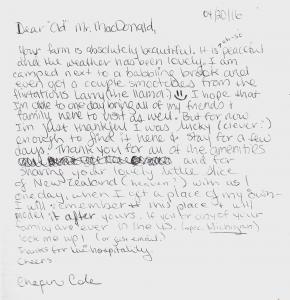 04/20/16
Dear "Old" Mr. MacDonald,
Your farm is absolutely beautiful. It is peaceful
and the weather has been lovely. I am
camped next to a babbling brook and
even got a couple smooches from the
flirtatious Larry (the llama). I hope that
I'm able to one day bring all of my friends &
family here to visit as well. But for now
I'm just thankful I was lucky (clever?)
enough to find it here & stay for a few
days. Thank you for all of the amenities
and for
sharing your lovely little slice
of New Zealand (heaven?) with us
one day, when I get a place of my own-
I will remember this place & will
model it after yours. If you or any of your
family are ever in the US. (upper Michigan)
look me up! (or just email.)
Thanks for the hospitality
Cheers
Chapin Cole